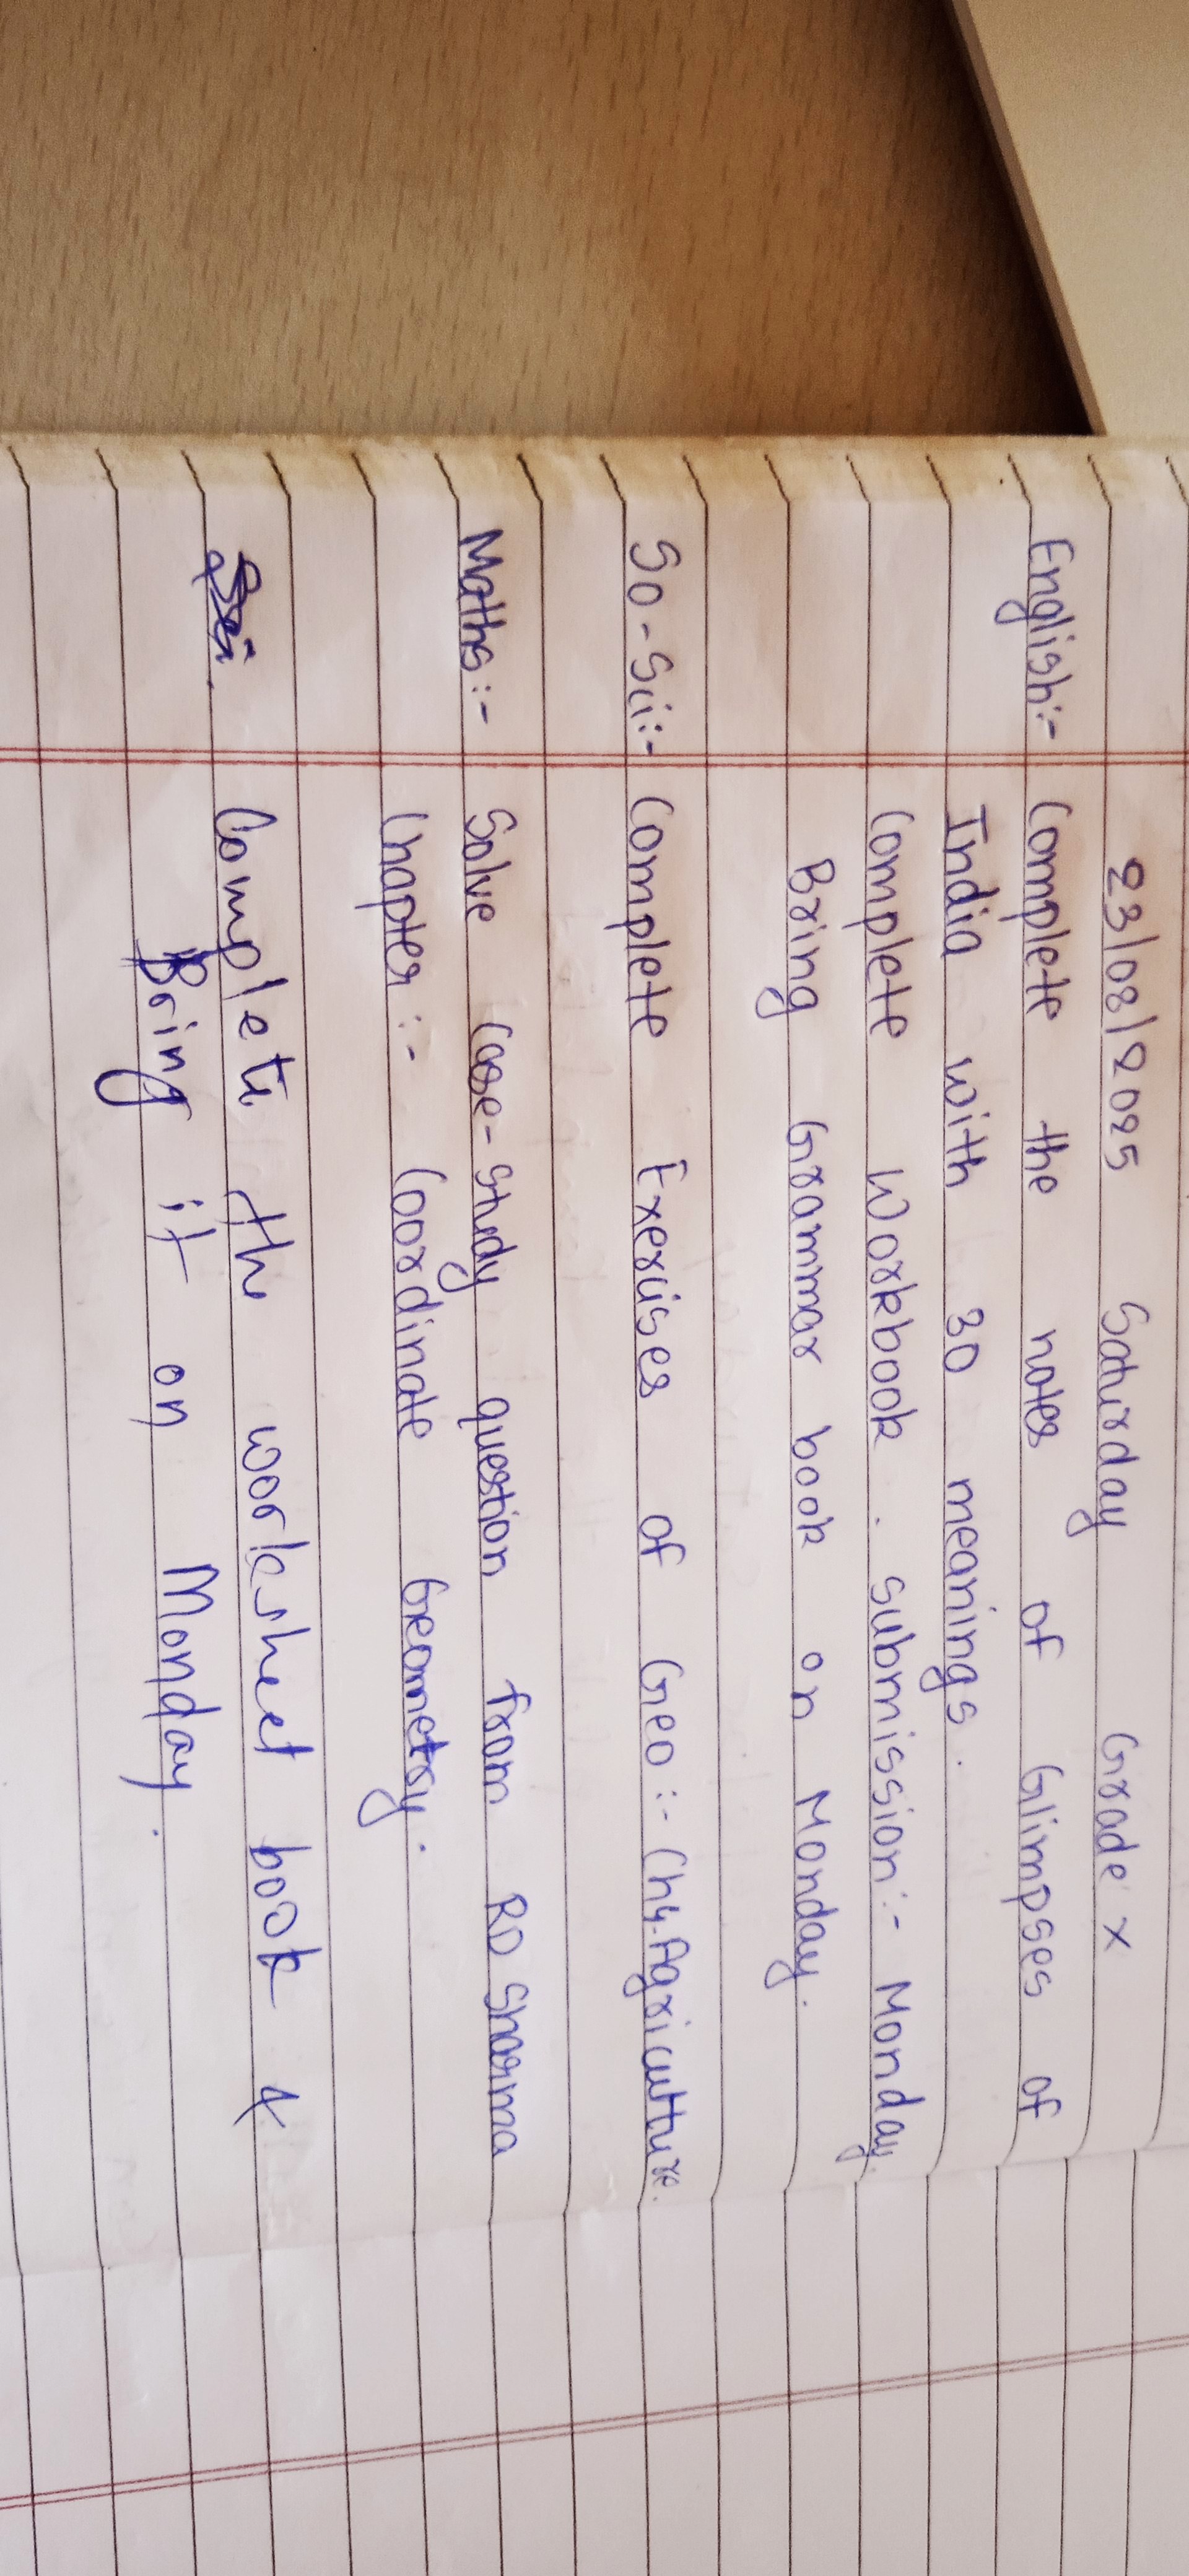 23/08/2025 Saturday Grade X
English:- Complete the notes of Glimpses of
India with 30 meanings.
Complete Workbook. submission:- Monday.
Bring Grammar book on Monday.
So-Sci:- Complete Exercises of Geo:- Ch4. Agriculture.
Maths:- Solve Case-study question from RD Sharma
Chapter:- Coordinate Geometry.
Complete the worksheet book &
Bring it on Monday.